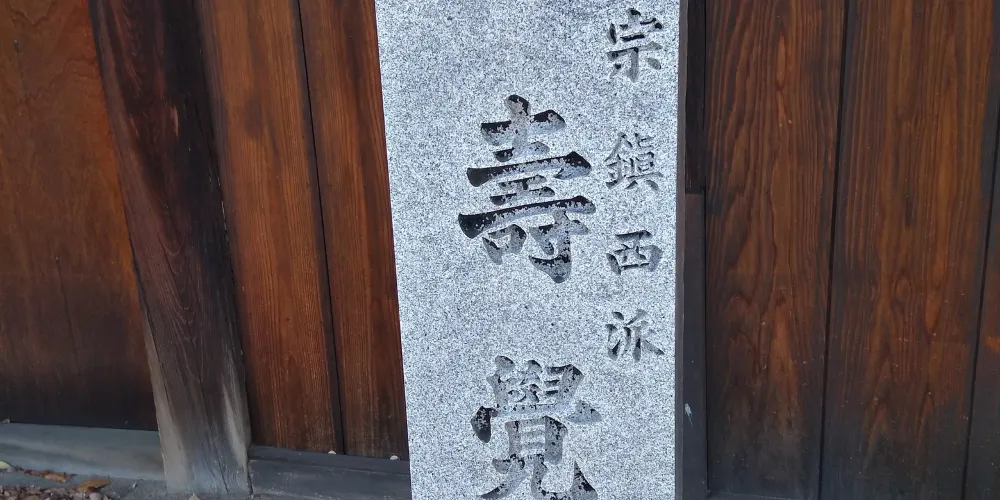 宗鎭西派
壽覺